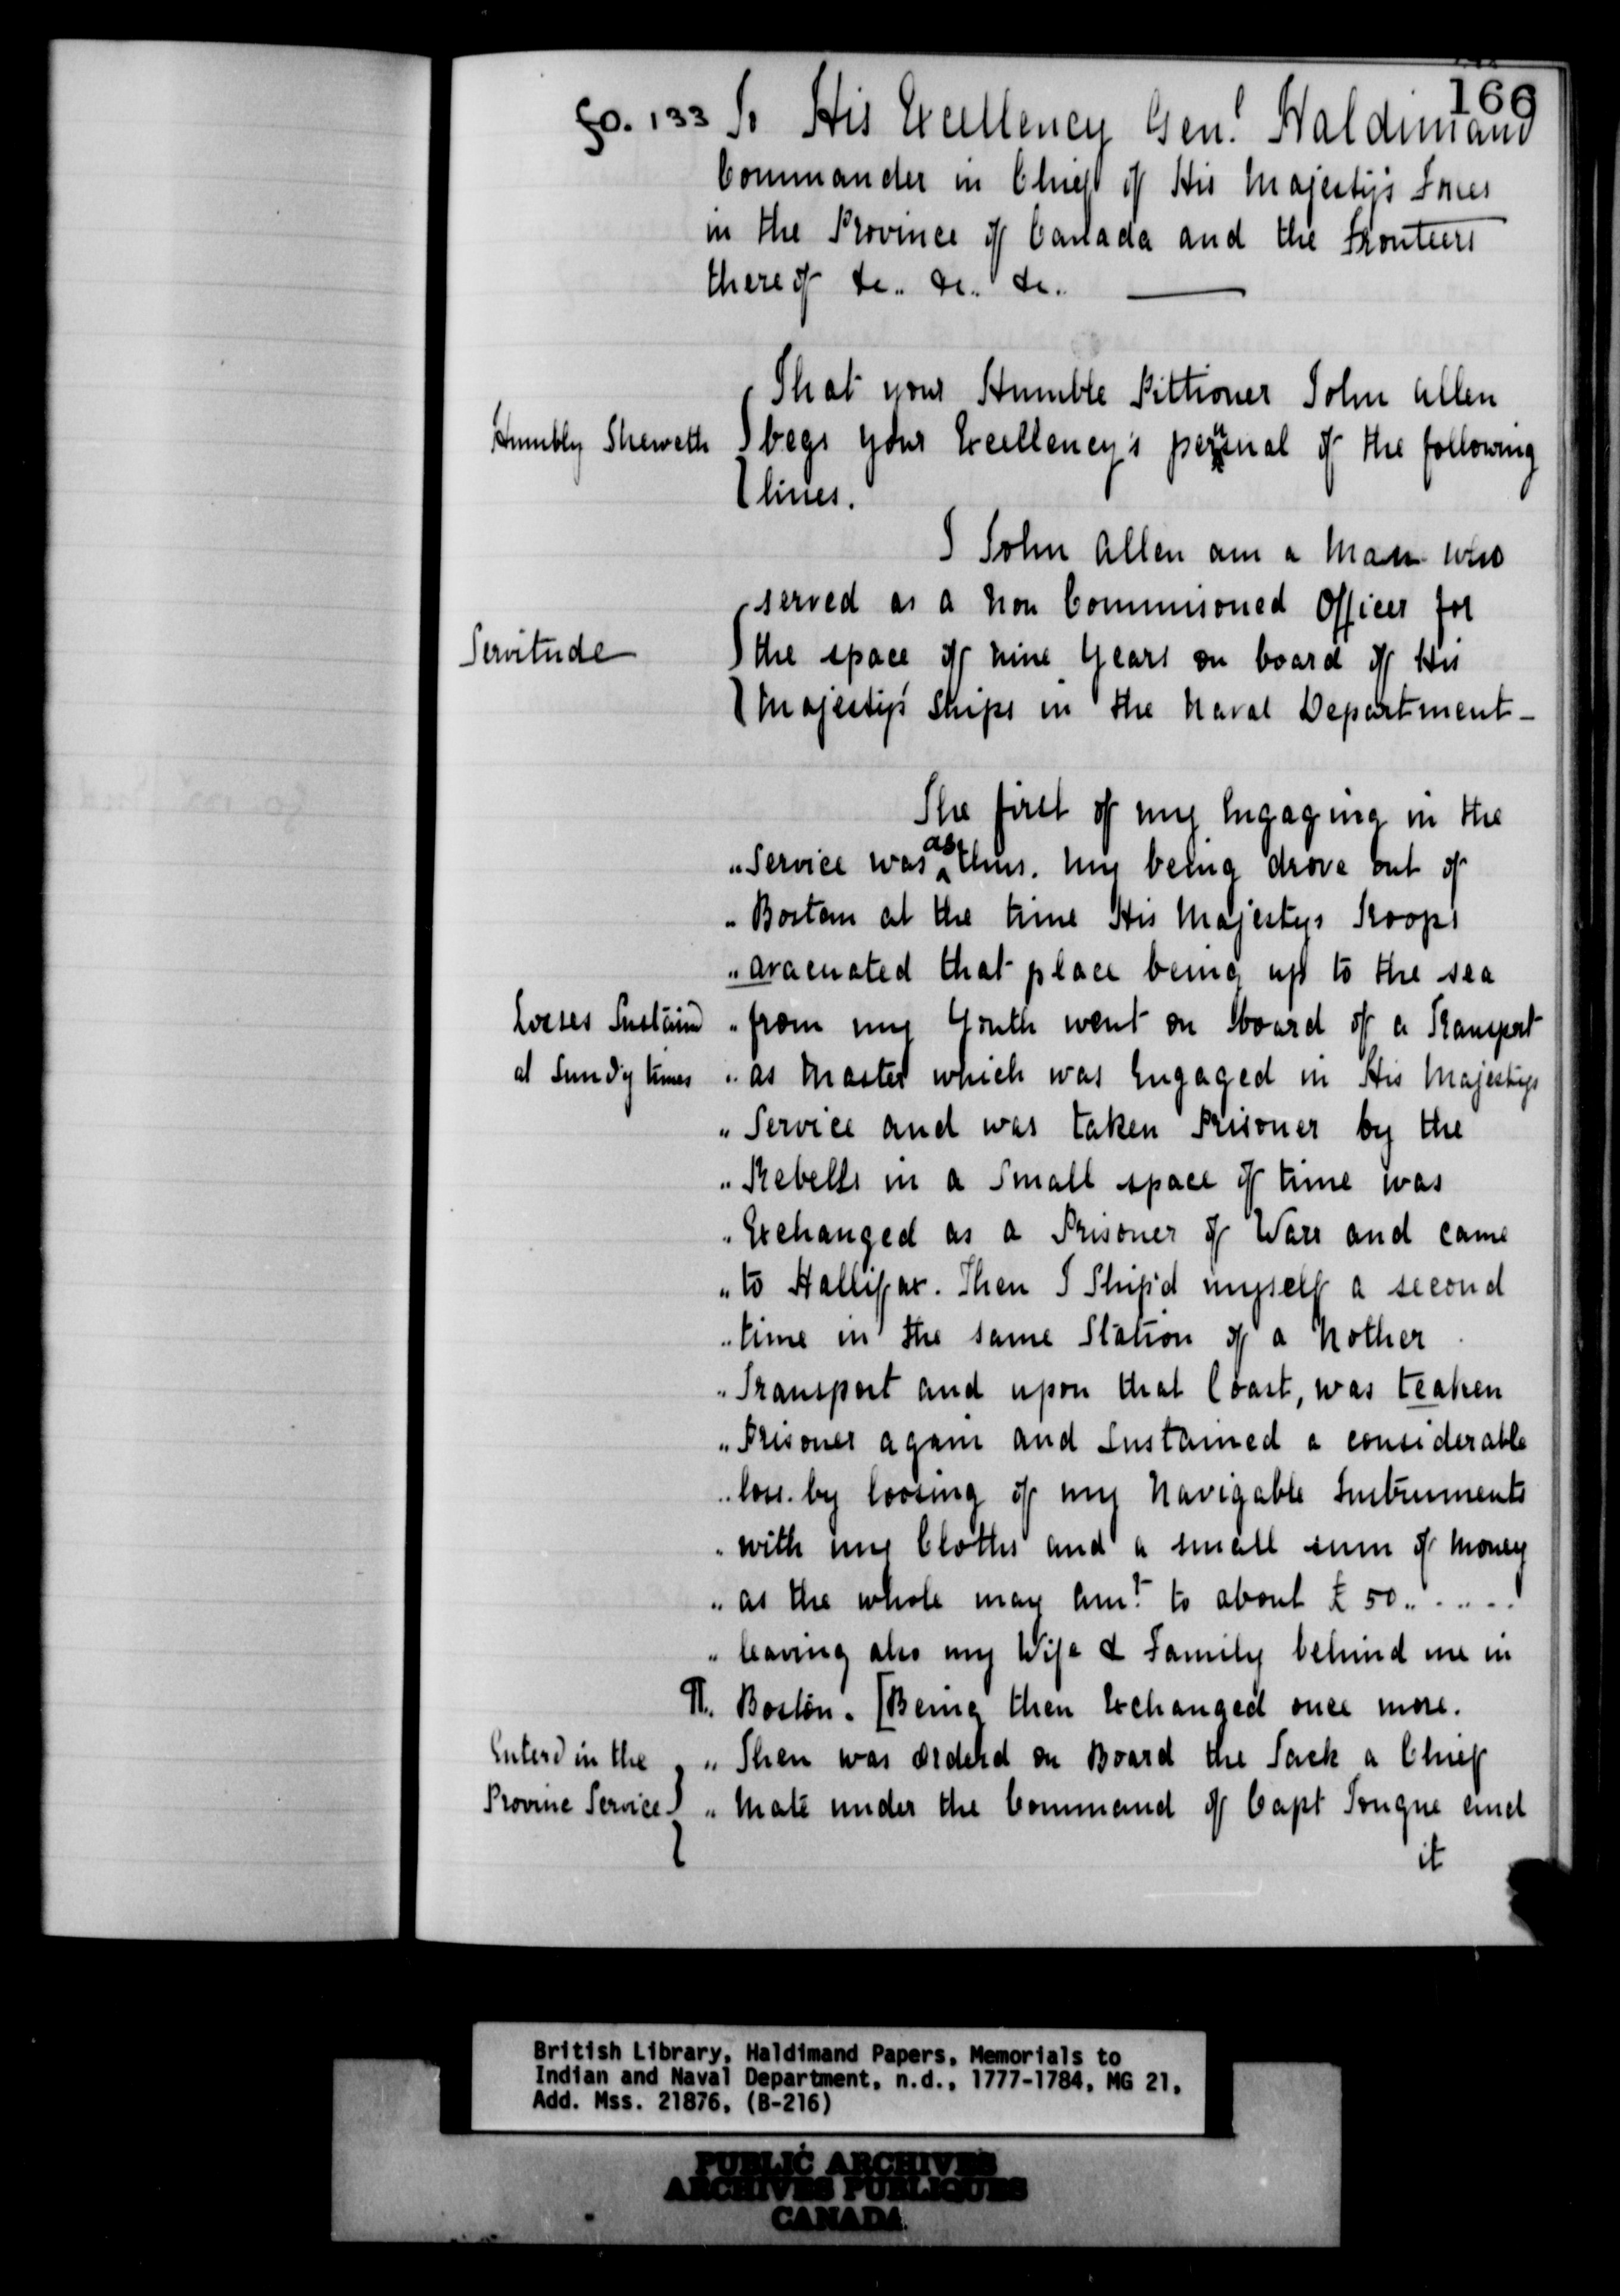 166
fo. 133 To His Excellency Genl. Haldimand
Commander in Chief of His Majesty's Forces
in the Province of Canada and the Fronteers
there of &c.. &c.. &c..
That your Humble Pittioner John Allen
Humbly Sheweth begs your Excellency's perusal of the following
lines.
I John Allen am a Man who
served as a Non Commisoned Officer for
Servitude the space of nine Years on board of His
Majesty's Ships in the Naval Department -
The first of my Engaging in the
" Service was as thus. my being drove out of
" Bostom at the time His Majestys Troops
" avacuated that place being up to the sea
Losses Sustain'd " from my Youth went on board of a Transport
at Sundy times " as Master which was Engaged in His Majestys
" Service and was taken Prisoner by the
" Rebells in a Small space of time was
" Exchanged as a Prisoner of Warr and came
" to Hallifax. Then I Ship'd myself a second
" time in the same Station of a Nother
" Transport and upon that Coast, was teaken
" Prisoner again and Sustained a considerable
" loss. by loosing of my Navigable Instruments
" with my Cloths and a small sum of Money
" as the whole may Amt. to about £ 50.. .. .. ..
" leaving also my Wife & Family behind me in
¶. Boston. [Being then Exchanged once more.
Enterd in the " Then was orderd on Board the Jack a Chief
Provine Service " Mate under the Command of Capt Tongue and
it
British Library, Haldimand Papers, Memorials to
Indian and Naval Department, n.d., 1777-1784, MG 21,
Add. Mss. 21876, (B-216)
PUBLIC ARCHIVES
ARCHIVES PUBLIQUES
CANADA